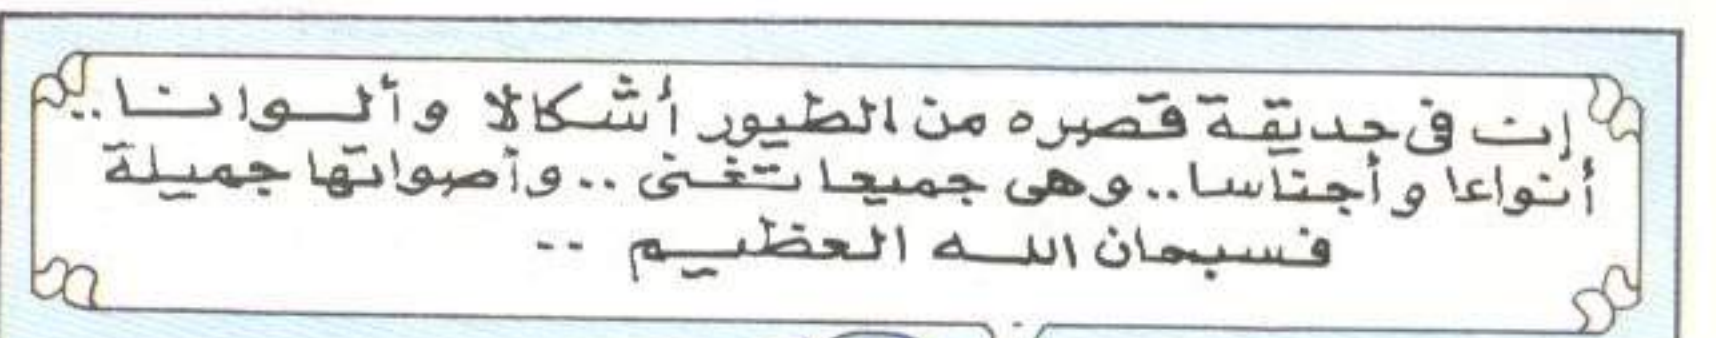 إن فى حديقة قصره من الطيور أشكالا وألوانا..
أنواعا وأجناسا.. وهى جميعا تغنى .. وأصواتها جميلة
فسبحان الله العظيم ..